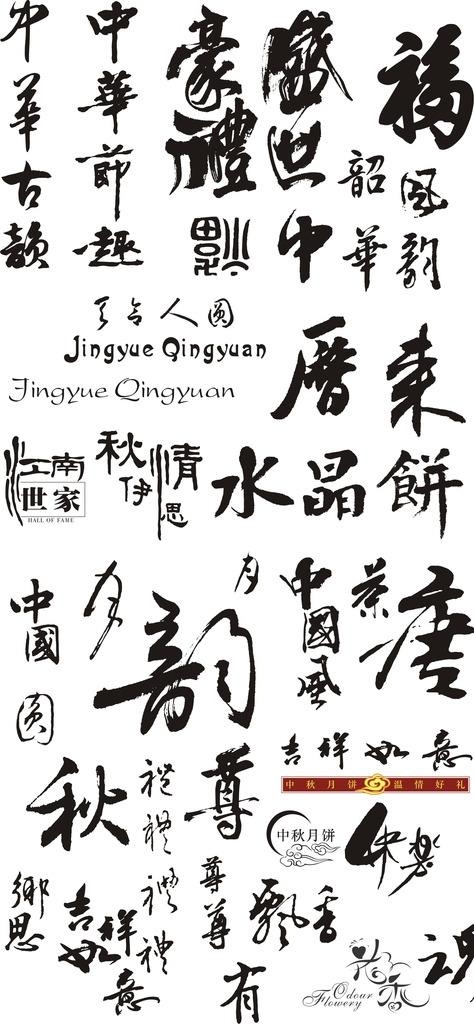 中華古韻
中華節趣
豪禮
盛世
中華
福
韶
風韵
福
天合人圓
Jingyue Qingyuan
Jingyue Qingyuan
曆
來
江南
世家
HALL OF FAME
秋伊
情思
水晶餅
中國
圆
月
月
韵
中國風
茶
唐
吉祥如意
中秋月饼 温情好礼
秋
禮
禮
禮
禮
尊
中秋月饼
鄉思
吉祥如意
尊
尊
飄香
有
花香
Odour
Flowery